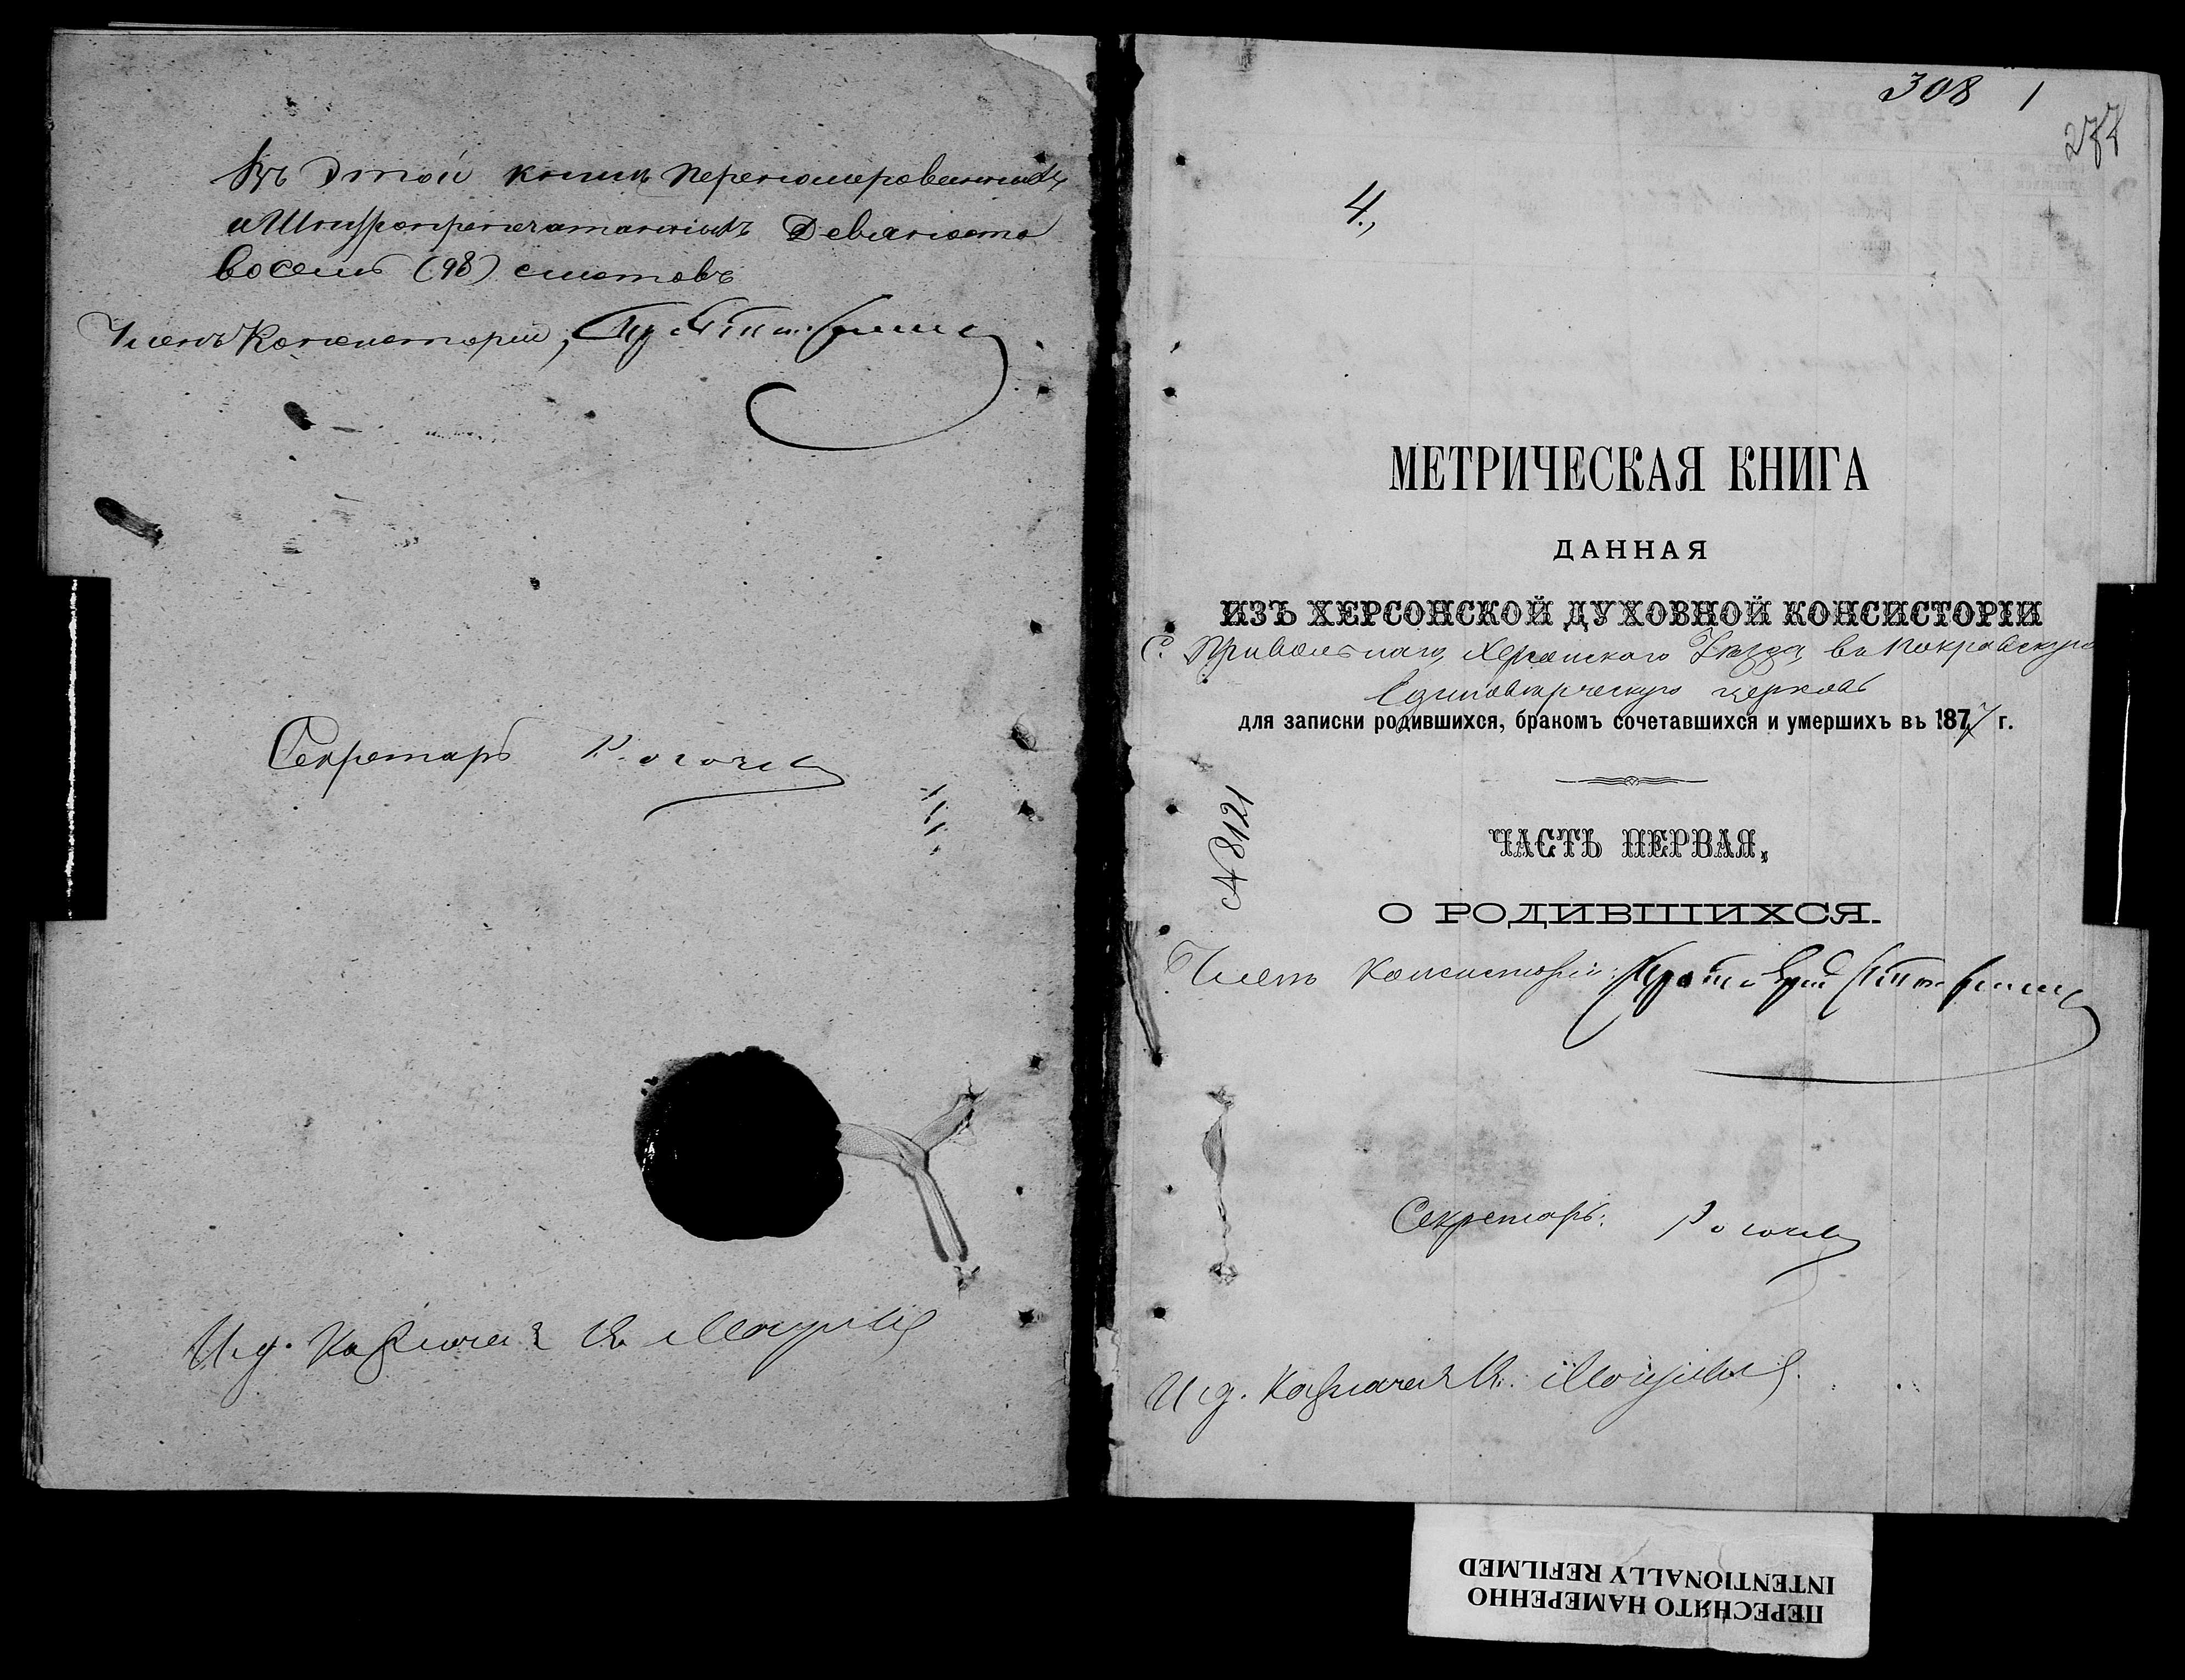 Въ этой книгѣ перенумерованныхъ
и Шнуропрепечатанныхъ Девяносто
восемь (98) листовъ
Членъ Консисторіи,
Секретарь
И. д. Казначея
308 1
4.,
МЕТРИЧЕСКАЯ КНИГА
ДАННАЯ
ИЗЪ ХЕРСОНСКОЙ ДУХОВНОЙ КОНСИСТОРІИ
С. Привольнаго, Херсонскаго Уѣзда, въ Покровскую
Единовѣрческую церковь
для записки родившихся, бракомъ сочетавшихся и умершихъ въ 1877 г.
№ 8121
ЧАСТЬ ПЕРВАЯ,
О РОДИВШИХСЯ.
Членъ Консисторіи:
Секретарь:
И. д. Казначея
ПЕРЕСНЯТО НАМЕРЕННО
INTENTIONALLY REFILMED